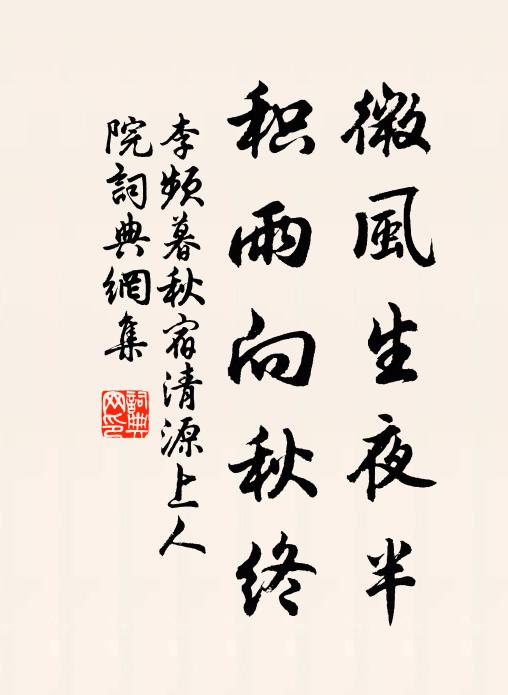 微風生夜半
积雨向秋终
李频暮秋宿清源上人
院詞典網集
詞典
网印